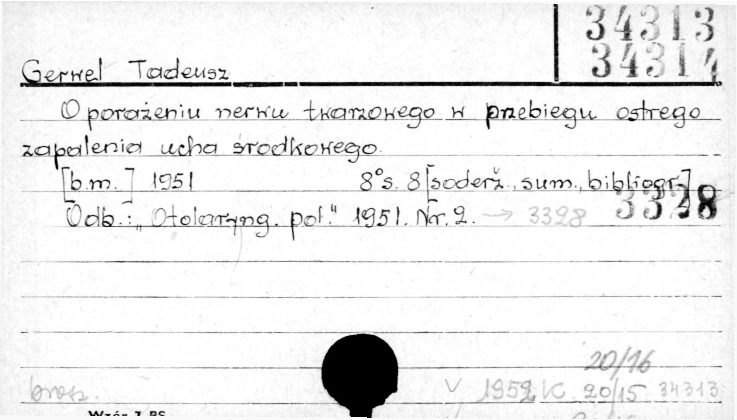 34313
34314
Gerwel Tadeusz
O porażeniu nerwu twarzowego w przebiegu ostrego
zapalenia ucha środkowego.
[b.m.] 1951 8°s. 8 [soderž., sum., bibliogr.]
Odb.: „Otolaryng. pol." 1951. Nr. 2. → 3328 3328
20/16
brosz. V 1952 K. 20/15 34313
Wzór 7 BS